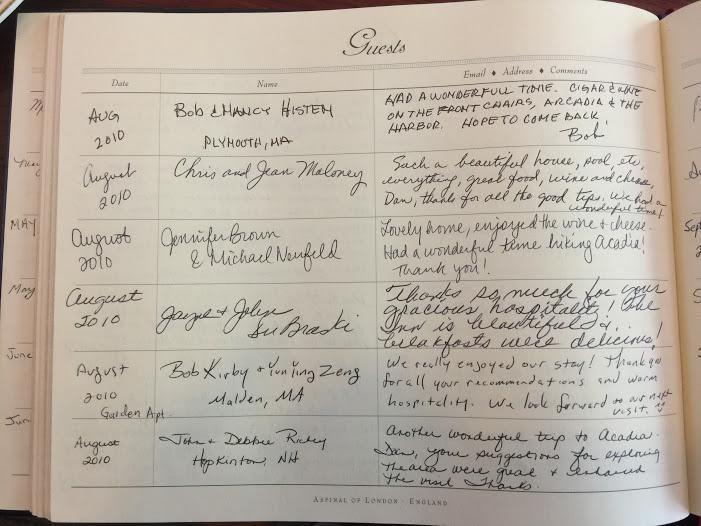 Guests
Date
Name
Email ♦ Address ♦ Comments
AUG
2010
Bob & NANCY HISTEN
PLYMOUTH, MA
HAD A WONDERFUL TIME. CIGAR & WINE
ON THE FRONT CHAIRS, ARCADIA & THE
HARBOR. HOPE TO COME BACK!
Bob
August
2010
Chris and Jean Maloney
Such a beautiful house, pool, etc,
everything, great food, wine and cheese,
Dan, thanks for all the good tips. We had a
wonderful time!
MAY
August
2010
Jennifer Brown
& Michael Neufeld
Lovely home, enjoyed the wine & cheese.
Had a wonderful time hiking Acadia!
Thank you!
May
August
2010
Jayne & John
Thanks so much for your
gracious hospitality! The
Inn is beautiful & . .
breakfasts were delicious!
June
August
2010
Garden Apt.
Bob Kirby & YunYing Zeng
Malden, MA
We really enjoyed our stay! Thank you
for all your recommendations and warm
hospitality. We look forward to our next
visit.
August
2010
John & Debbie
Hopkinton, NH
Another wonderful trip to Acadia.
Dan, your suggestions for exploring
the area were great & enhanced
the visit Thanks.
ASPINAL OF LONDON · ENGLAND